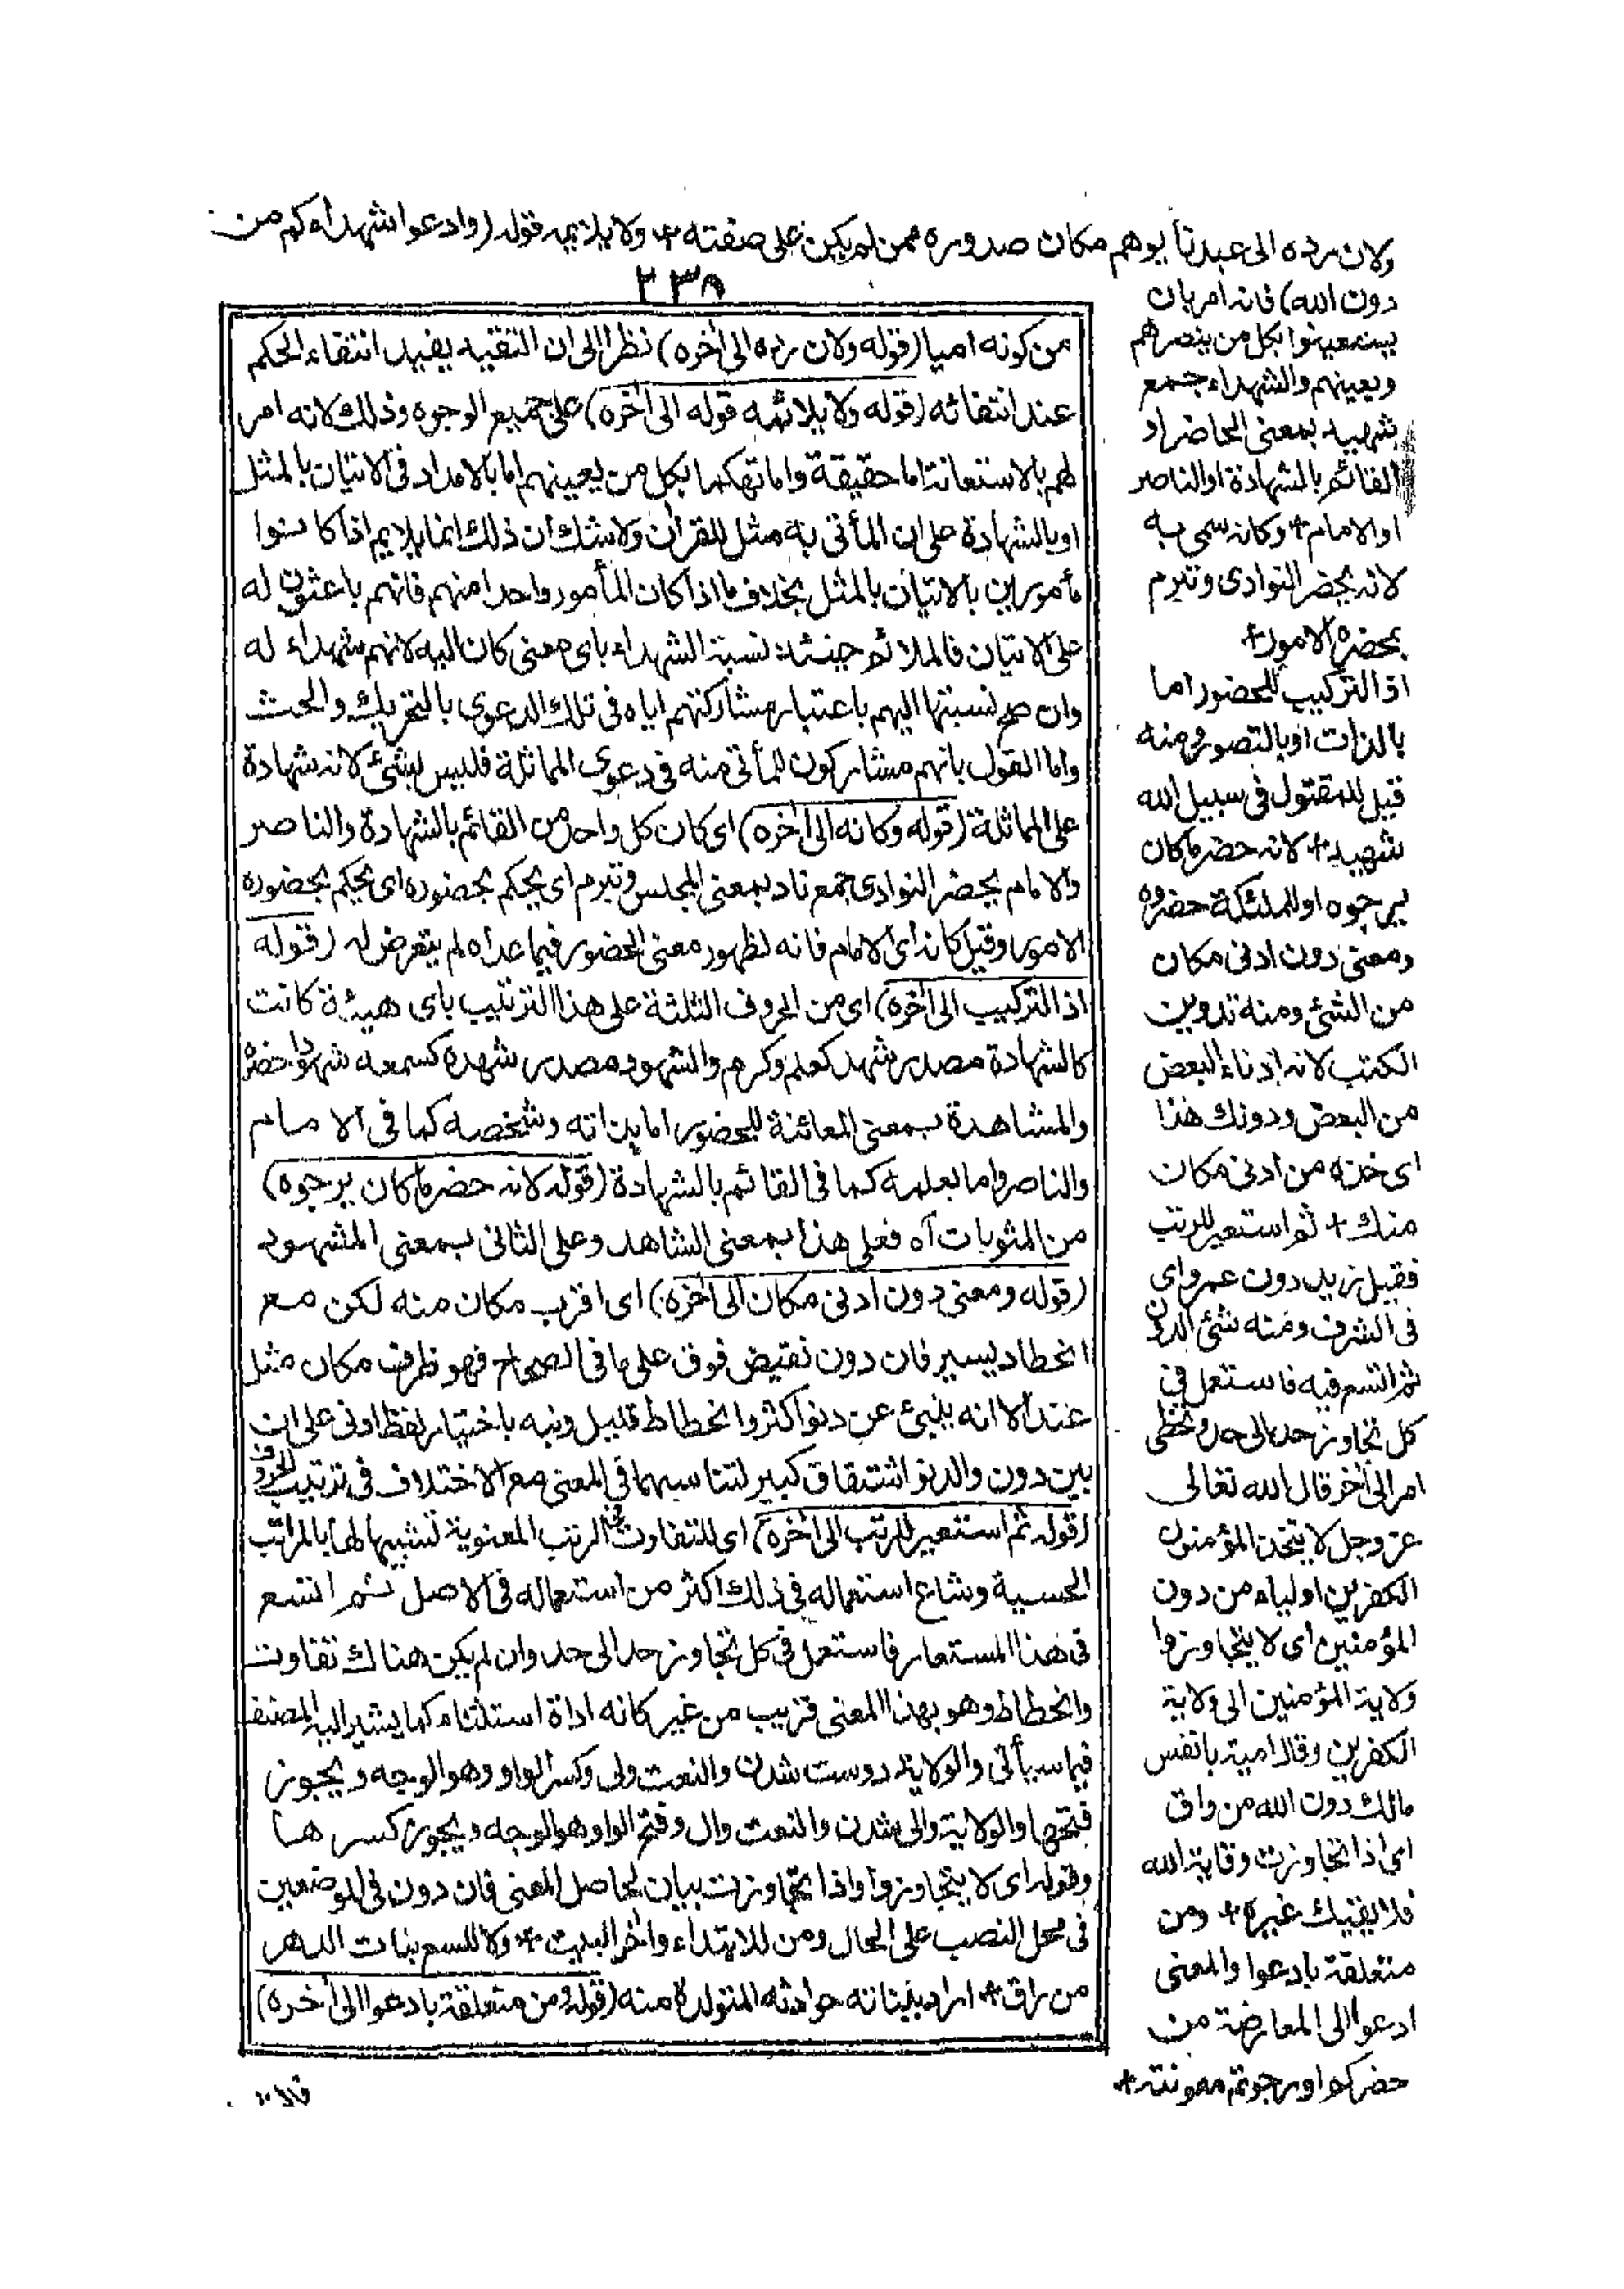 ولان رده الى عبدنا يوهم مكان صدوره ممن لم يكن على صفته + ولا يلايمه قوله (وادعوا شهداءكم من
٢٣٨
دون الله) فانه امر بان
يستعينوا بكل من ينصرهم
ويعينهم والشهداء جمع
شهيد بمعنى الحاضر او
القائم بالشهادة او الناصر
او الامام + وكانه سمى به
لانه يحضر النوادى وتبرم
بحضره الامور +
اذ التركيب للحضور اما
بالذات او بالتصور ومنه
قيل للمقتول فى سبيل الله
شهيد + لانه حضر ما كان
يرجوه او الملئكة حضروه
ومعنى دون ادنى مكان
من الشئ ومنه تدوين
الكتب لانه ادناء البعض
من البعض ودونك هذا
اى خذه من ادنى مكان
منك + ثم استعير للرتب
فقيل زيد دون عمرو اى
فى الشرف ومنه شئ الدون
ثم اتسع فيه فاستعمل فى
كل تجاوز حد الى حد وتخطى
امر الى اخر قال الله تعالى
عز وجل لا يتخذ المؤمنون
الكفرين اولياء من دون
المؤمنين اى لا يتجاوزوا
ولاية المؤمنين الى ولاية
الكفرين وقال امية يا نفس
مالك دون الله من واق
اى اذا تجاوزت وقاية الله
فلا يقيك غيره + ومن
متعلقة بادعوا والمعنى
ادعوا الى المعارضة من
حضركم او رجوتم معونته +
من كونه اميا (قوله ولان رده الى اخره) نظرا الى ان التقييد يفيد انتفاء الحكم
عند انتفائه (قوله ولا يلائمه قوله الى اخره) على جميع الوجوه وذلك لانه امر
لهم بالاستعانة اما حقيقة واما تهكما بكل من يعينهم اما بالامداد فى الاتيان بالمثل
او بالشهادة على ان المأتى به مثل للقرأن ولا شك ان ذلك انما يلايم اذا كانوا
مأمورين بالاتيان بالمثل بخلاف ما اذا كان المأمور واحدا منهم فانهم باعثون له
على الاتيان فالملائم حينئذ نسبة الشهداء باى معنى كان اليه لانهم شهداء له
وان صح نسبتها اليهم باعتبار مشاركتهم اياه فى تلك الدعوى بالتحريك والحث
واما القول بانهم مشاركون للمأتى منه فى دعوى المماثلة فليس بشئ لانه شهادة
على المماثلة (قوله وكانه الى اخره) اى كان كل واحد من القائم بالشهادة والناصر
والامام يحضر النوادى جمع ناد بمعنى المجلس وتبرم اى يحكم بحضوره اى يحكم بحضوره
الامور وقيل كانه اى الامام فانه لظهور معنى الحضور فيما عداه لم يتعرض له (قوله
اذ التركيب الى اخره) اى من الحروف الثلثة على هذا الترتيب باى هيئة كانت
كالشهادة مصدر شهد كعلم وكرم والشهود مصدر شهده كسمعه شهودا حضره
والمشاهدة بمعنى المعائنة للحضور اما بذاته وشخصه كما فى الامام
والناصر واما بعلمه كما فى القائم بالشهادة (قوله لانه حضر ما كان يرجوه)
من المثوبات آه فعلى هذا بمعنى الشاهد وعلى الثانى بمعنى المشهود
(قوله ومعنى دون ادنى مكان الى اخره) اى اقرب مكان منه لكن مع
انحطاط يسير فان دون نقيض فوق على ما فى الصحاح فهو ظرف مكان مثل
عند الا انه ينبئ عن دنو اكثر وانحطاط قليل ونبه باختيار لفظ ادنى على ان
بين دون والدنو اشتقاق كبير لتناسبهما فى المعنى مع الاختلاف فى ترتيب الحروف
(قوله ثم استعير للرتب الى اخره) اى للتفاوت فى الرتب المعنوية تشبيها لها بالمراتب
الحسية وشاع استعماله فى ذلك اكثر من استعماله فى الاصل ثم اتسع
فى هذا المستعار فاستعمل فى كل تجاوز حد الى حد وان لم يكن هناك تفاوت
وانحطاط وهو بهذا المعنى قريب من غير كانه اداة استثناء كما يشير اليه المصنف
فيما سيأتى والولاية دوست شدن والنعت ولى وكسر الواو وهو الوجه ويجوز
فتحها والولاية والى شدن والنعت وال وفتح الواو هو الوجه ويجوز كسرها
وقوله اى لا يتجاوزوا واذا تجاوزت بيان لحاصل المعنى فان دون فى الموضعين
فى محل النصب على الحال ومن للابتداء واخر البيت + ولا للسع بنات الدهر
من راق + اراد ببناته حوادثه المتولدة منه (قوله ومن متعلقة بادعوا الى اخره)